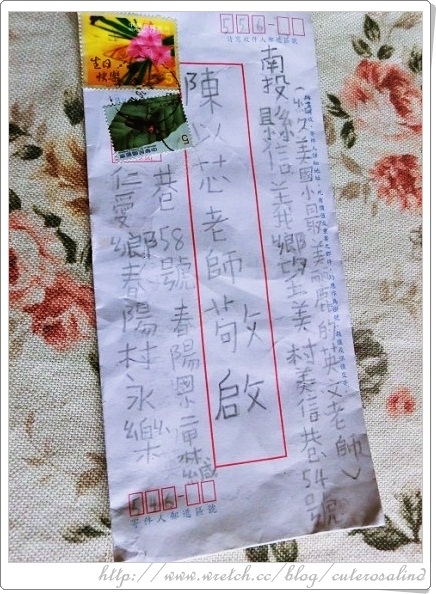 556-
請寫收件人郵遞區號
久美國小最美麗的英文老師)
南投縣信義鄉望美村美信巷54號
陳以芯老師敬啟
巷58號 春陽
緘
仁愛鄉春陽村永樂
生日快樂
5
546-
寄件人郵遞區號
http://www.wretch.cc/blog/cuterosalind